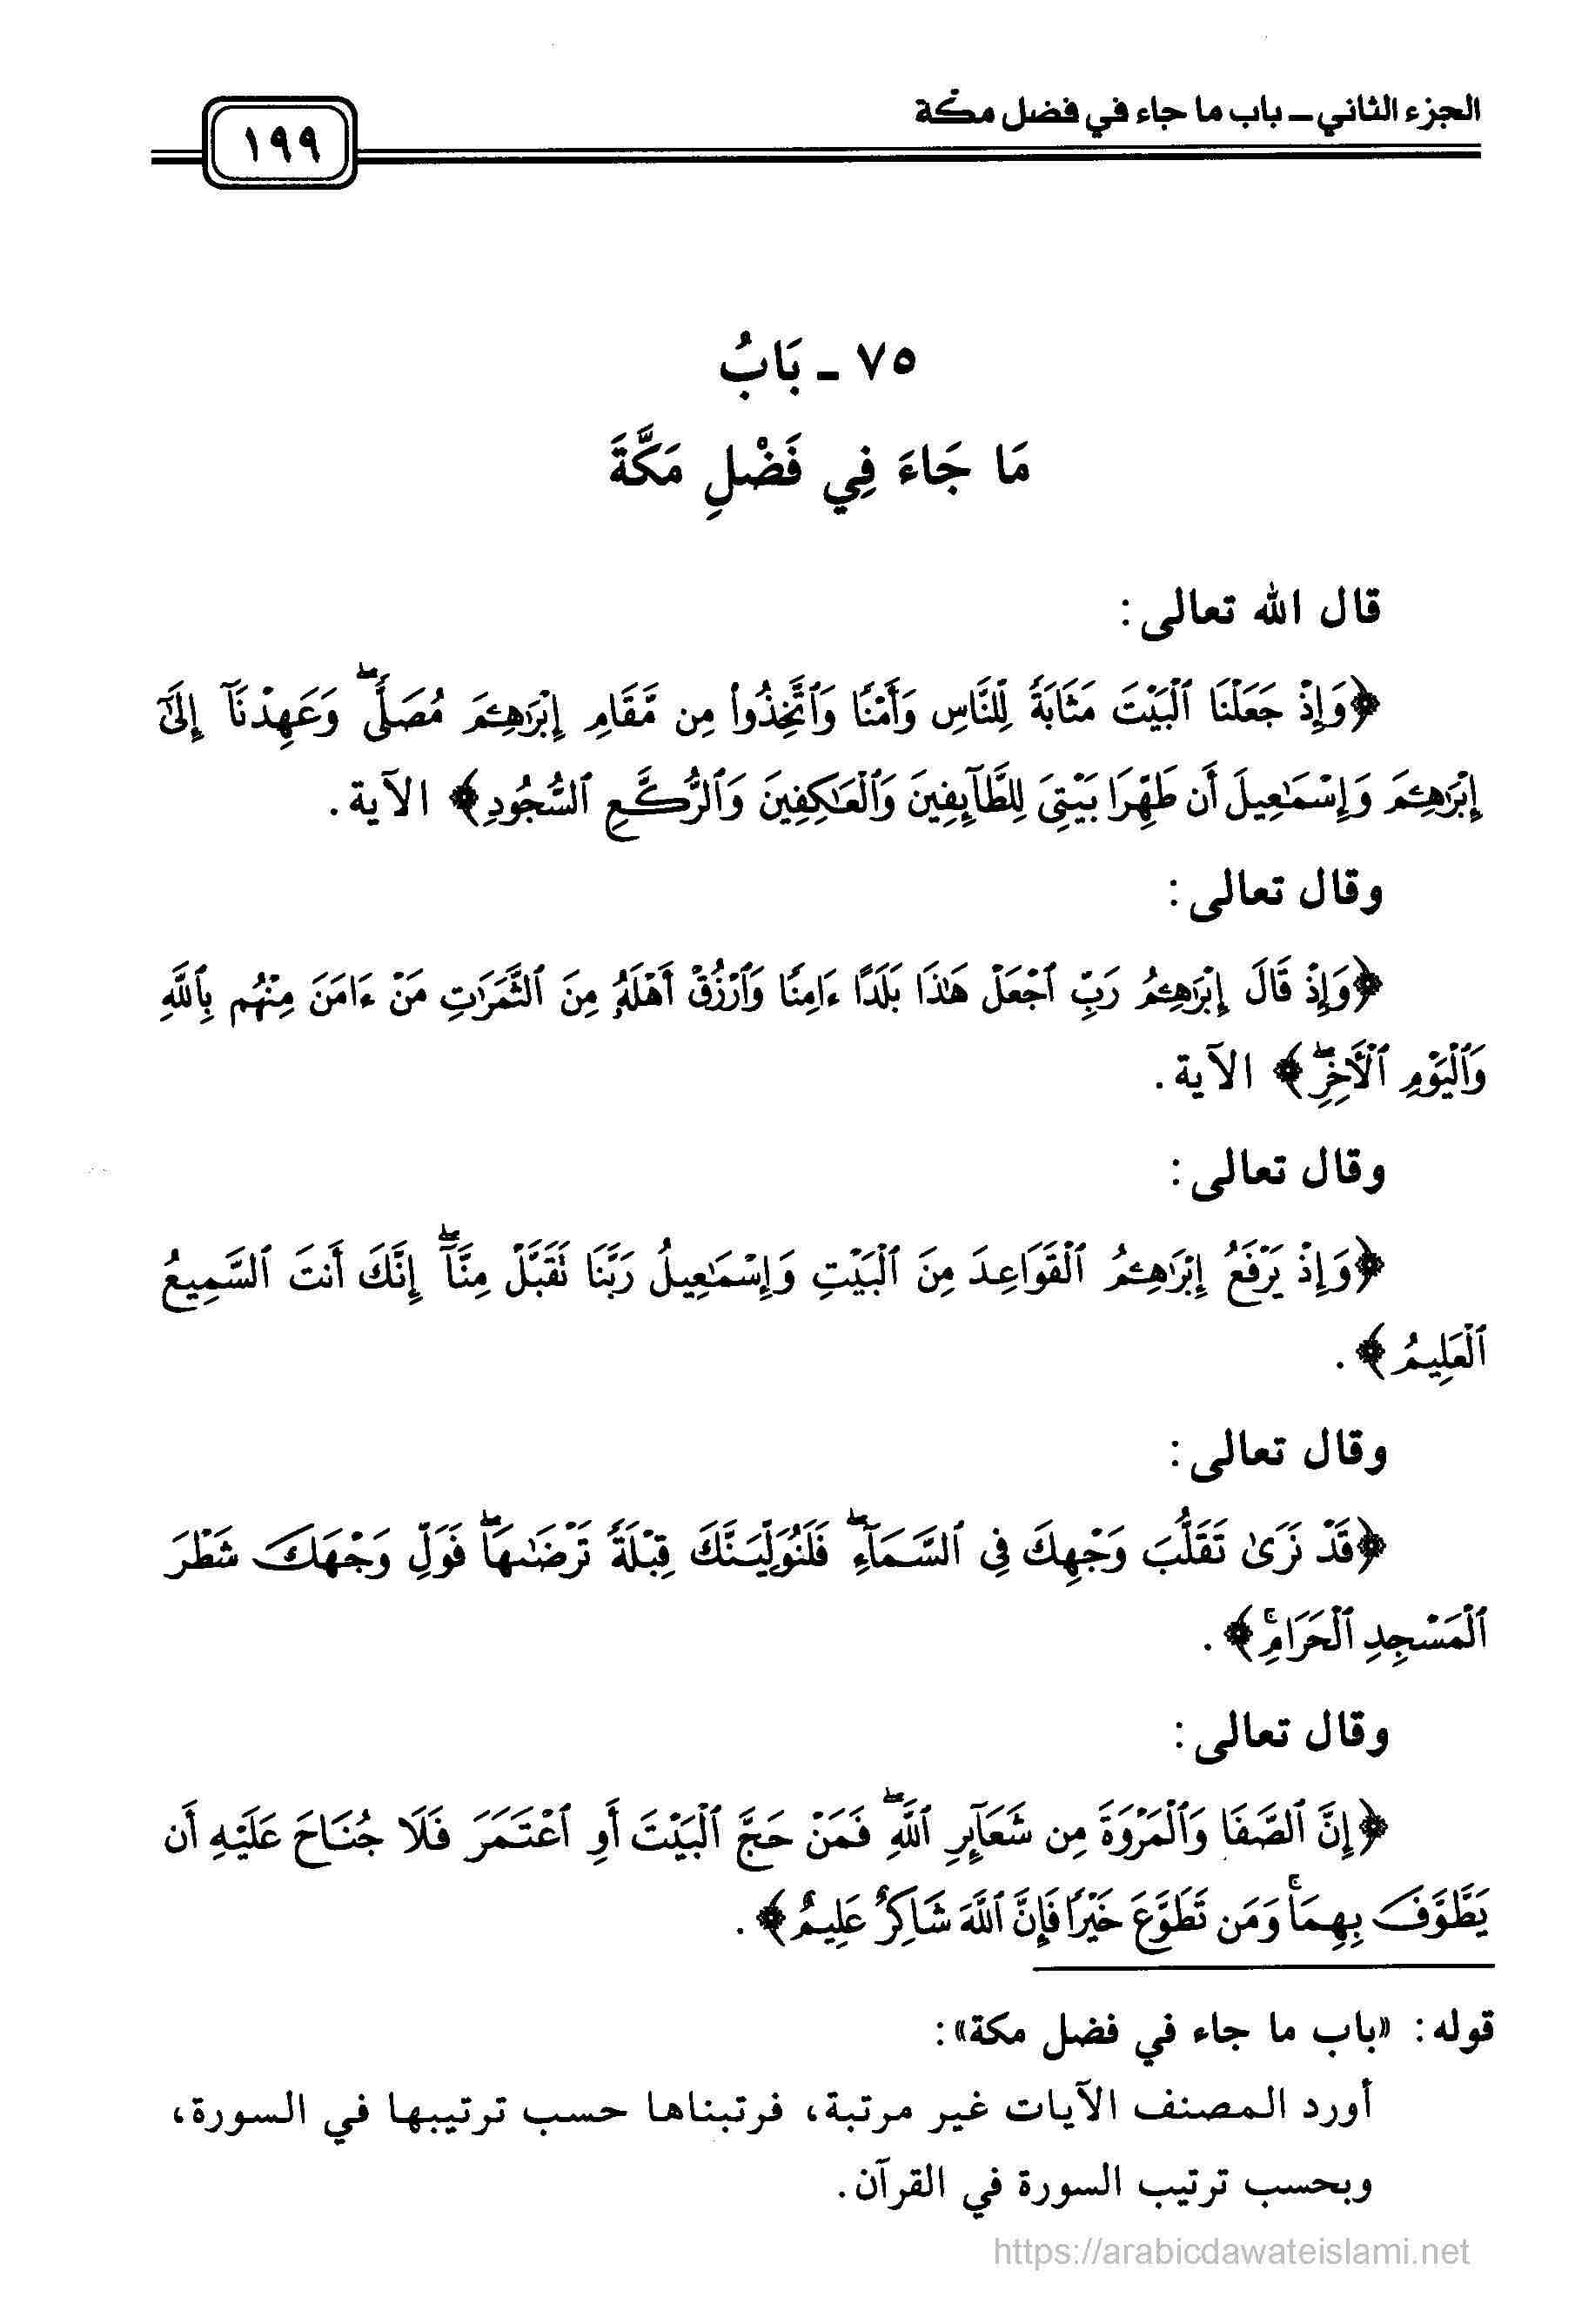 الجزء الثاني ـ باب ما جاء في فضل مكّة
١٩٩
٧٥ ـ بَابُ
مَا جَاءَ فِي فَضْلِ مَكَّةَ
قال الله تعالى:
﴿وَإِذْ جَعَلْنَا ٱلْبَيْتَ مَثَابَةً لِّلنَّاسِ وَأَمْنًا وَٱتَّخِذُوا۟ مِن مَّقَامِ إِبْرَٰهِـۧمَ مُصَلًّى ۖ وَعَهِدْنَآ إِلَىٰٓ
إِبْرَٰهِـۧمَ وَإِسْمَٰعِيلَ أَن طَهِّرَا بَيْتِىَ لِلطَّآئِفِينَ وَٱلْعَٰكِفِينَ وَٱلرُّكَّعِ ٱلسُّجُودِ﴾ الآية.
وقال تعالى:
﴿وَإِذْ قَالَ إِبْرَٰهِـۧمُ رَبِّ ٱجْعَلْ هَٰذَا بَلَدًا ءَامِنًا وَٱرْزُقْ أَهْلَهُۥ مِنَ ٱلثَّمَرَٰتِ مَنْ ءَامَنَ مِنْهُم بِٱللَّهِ
وَٱلْيَوْمِ ٱلْـَٔاخِرِ ۖ﴾ الآية.
وقال تعالى:
﴿وَإِذْ يَرْفَعُ إِبْرَٰهِـۧمُ ٱلْقَوَاعِدَ مِنَ ٱلْبَيْتِ وَإِسْمَٰعِيلُ رَبَّنَا تَقَبَّلْ مِنَّآ ۖ إِنَّكَ أَنتَ ٱلسَّمِيعُ
ٱلْعَلِيمُ﴾.
وقال تعالى:
﴿قَدْ نَرَىٰ تَقَلُّبَ وَجْهِكَ فِى ٱلسَّمَآءِ ۖ فَلَنُوَلِّيَنَّكَ قِبْلَةً تَرْضَىٰهَا ۖ فَوَلِّ وَجْهَكَ شَطْرَ
ٱلْمَسْجِدِ ٱلْحَرَامِ ۚ﴾.
وقال تعالى:
﴿إِنَّ ٱلصَّفَا وَٱلْمَرْوَةَ مِن شَعَآئِرِ ٱللَّهِ ۖ فَمَنْ حَجَّ ٱلْبَيْتَ أَوِ ٱعْتَمَرَ فَلَا جُنَاحَ عَلَيْهِ أَن
يَطَّوَّفَ بِهِمَا ۚ وَمَن تَطَوَّعَ خَيْرًا فَإِنَّ ٱللَّهَ شَاكِرٌ عَلِيمٌ﴾.
قوله: «باب ما جاء في فضل مكة»:
أورد المصنف الآيات غير مرتبة، فرتبناها حسب ترتيبها في السورة،
وبحسب ترتيب السورة في القرآن.
https://arabicdawateislami.net